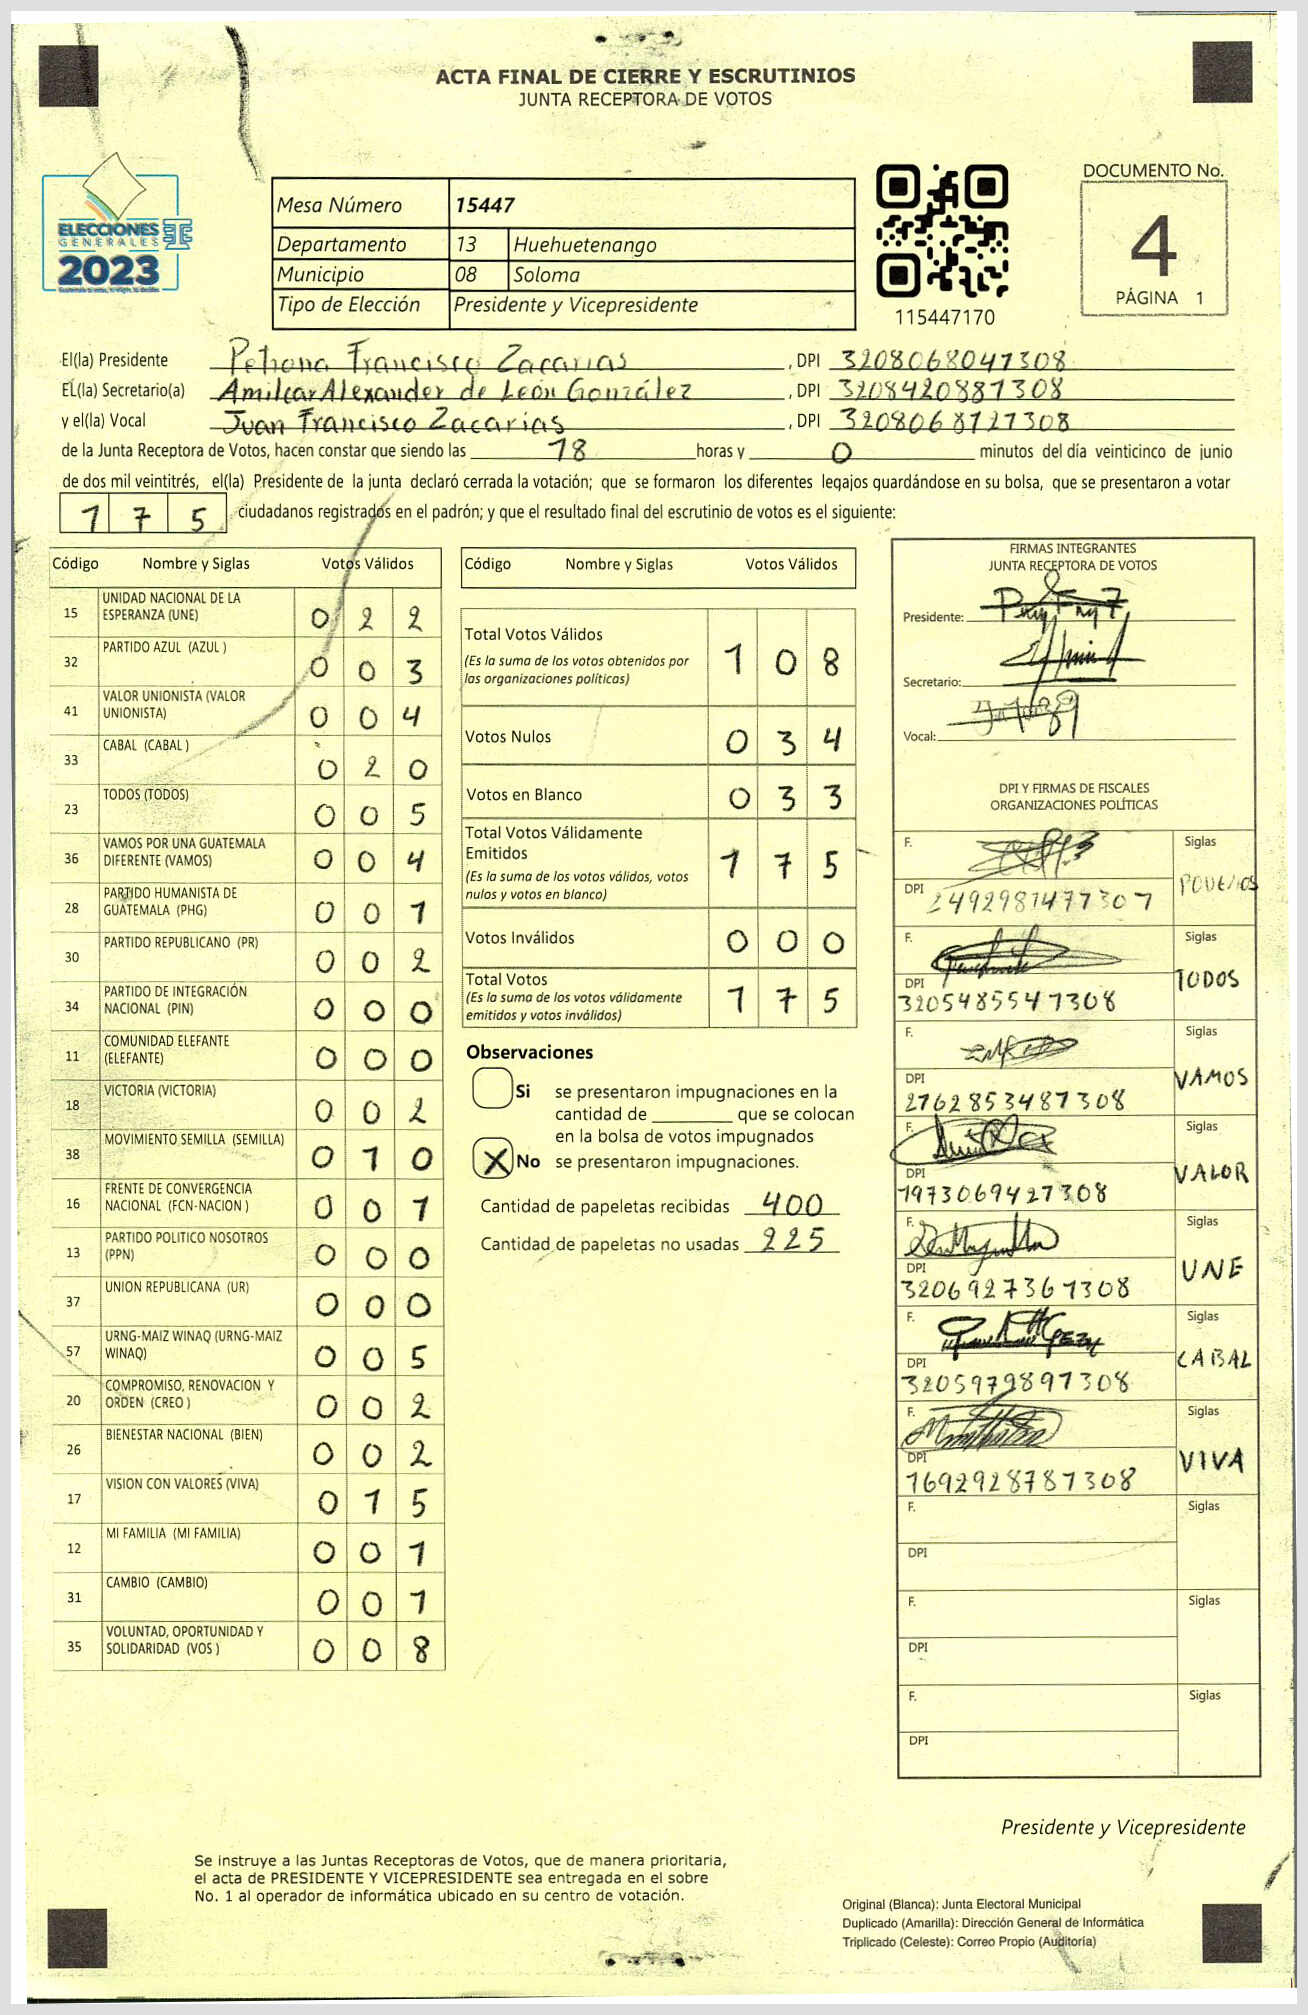 ACTA FINAL DE CIERRE Y ESCRUTINIOS
JUNTA RECEPTORA DE VOTOS
ELECCIONES
GENERALES
2023
Mesa Número 15447
Departamento 13 Huehuetenango
Municipio 08 Soloma
Tipo de Elección Presidente y Vicepresidente
115447170
DOCUMENTO No.
4
PÁGINA 1
El(la) Presidente Petrona Francisco Zacarias, DPI 3208068047308
EL(la) Secretario(a) Amilcar Alexander de León González, DPI 3208420887308
y el(la) Vocal Juan Francisco Zacarias, DPI 3208068727308
de la Junta Receptora de Votos, hacen constar que siendo las 18 horas y 0 minutos del día veinticinco de junio
de dos mil veintitrés, el(la) Presidente de la junta declaró cerrada la votación; que se formaron los diferentes legajos guardándose en su bolsa, que se presentaron a votar
175 ciudadanos registrados en el padrón; y que el resultado final del escrutinio de votos es el siguiente:
Código Nombre y Siglas Votos Válidos
15 UNIDAD NACIONAL DE LA
ESPERANZA (UNE) 0 2 2
32 PARTIDO AZUL (AZUL ) 0 0 3
41 VALOR UNIONISTA (VALOR
UNIONISTA) 0 0 4
33 CABAL (CABAL ) 0 2 0
23 TODOS (TODOS) 0 0 5
36 VAMOS POR UNA GUATEMALA
DIFERENTE (VAMOS) 0 0 4
28 PARTIDO HUMANISTA DE
GUATEMALA (PHG) 0 0 1
30 PARTIDO REPUBLICANO (PR) 0 0 2
34 PARTIDO DE INTEGRACIÓN
NACIONAL (PIN) 0 0 0
11 COMUNIDAD ELEFANTE
(ELEFANTE) 0 0 0
18 VICTORIA (VICTORIA) 0 0 2
38 MOVIMIENTO SEMILLA (SEMILLA) 0 1 0
16 FRENTE DE CONVERGENCIA
NACIONAL (FCN-NACION ) 0 0 1
13 PARTIDO POLITICO NOSOTROS
(PPN) 0 0 0
37 UNION REPUBLICANA (UR) 0 0 0
57 URNG-MAIZ WINAQ (URNG-MAIZ
WINAQ) 0 0 5
20 COMPROMISO, RENOVACION Y
ORDEN (CREO ) 0 0 2
26 BIENESTAR NACIONAL (BIEN) 0 0 2
17 VISION CON VALORES (VIVA) 0 1 5
12 MI FAMILIA (MI FAMILIA) 0 0 1
31 CAMBIO (CAMBIO) 0 0 1
35 VOLUNTAD, OPORTUNIDAD Y
SOLIDARIDAD (VOS ) 0 0 8
Código Nombre y Siglas Votos Válidos
Total Votos Válidos 1 0 8
(Es la suma de los votos obtenidos por
las organizaciones políticas)
Votos Nulos 0 3 4
Votos en Blanco 0 3 3
Total Votos Válidamente
Emitidos 1 7 5
(Es la suma de los votos válidos, votos
nulos y votos en blanco)
Votos Inválidos 0 0 0
Total Votos 1 7 5
(Es la suma de los votos válidamente
emitidos y votos inválidos)
Observaciones
Si se presentaron impugnaciones en la
cantidad de ________ que se colocan
en la bolsa de votos impugnados
X No se presentaron impugnaciones.
Cantidad de papeletas recibidas 400
Cantidad de papeletas no usadas 225
FIRMAS INTEGRANTES
JUNTA RECEPTORA DE VOTOS
Presidente:
Secretario:
Vocal:
DPI Y FIRMAS DE FISCALES
ORGANIZACIONES POLÍTICAS
F. Siglas
DPI 2492981477307 PODEMOS
F. Siglas
DPI 3205485547308 TODOS
F. Siglas
DPI 2762853487308 VAMOS
F. Siglas
DPI 1973069427308 VALOR
F. Siglas
DPI 3206927367308 UNE
F. Siglas
DPI 3205979897308 CABAL
F. Siglas
DPI 1692928787308 VIVA
F. Siglas
DPI
F. Siglas
DPI
F. Siglas
DPI
Presidente y Vicepresidente
Se instruye a las Juntas Receptoras de Votos, que de manera prioritaria,
el acta de PRESIDENTE Y VICEPRESIDENTE sea entregada en el sobre
No. 1 al operador de informática ubicado en su centro de votación.
Original (Blanca): Junta Electoral Municipal
Duplicado (Amarilla): Dirección General de Informática
Triplicado (Celeste): Correo Propio (Auditoría)